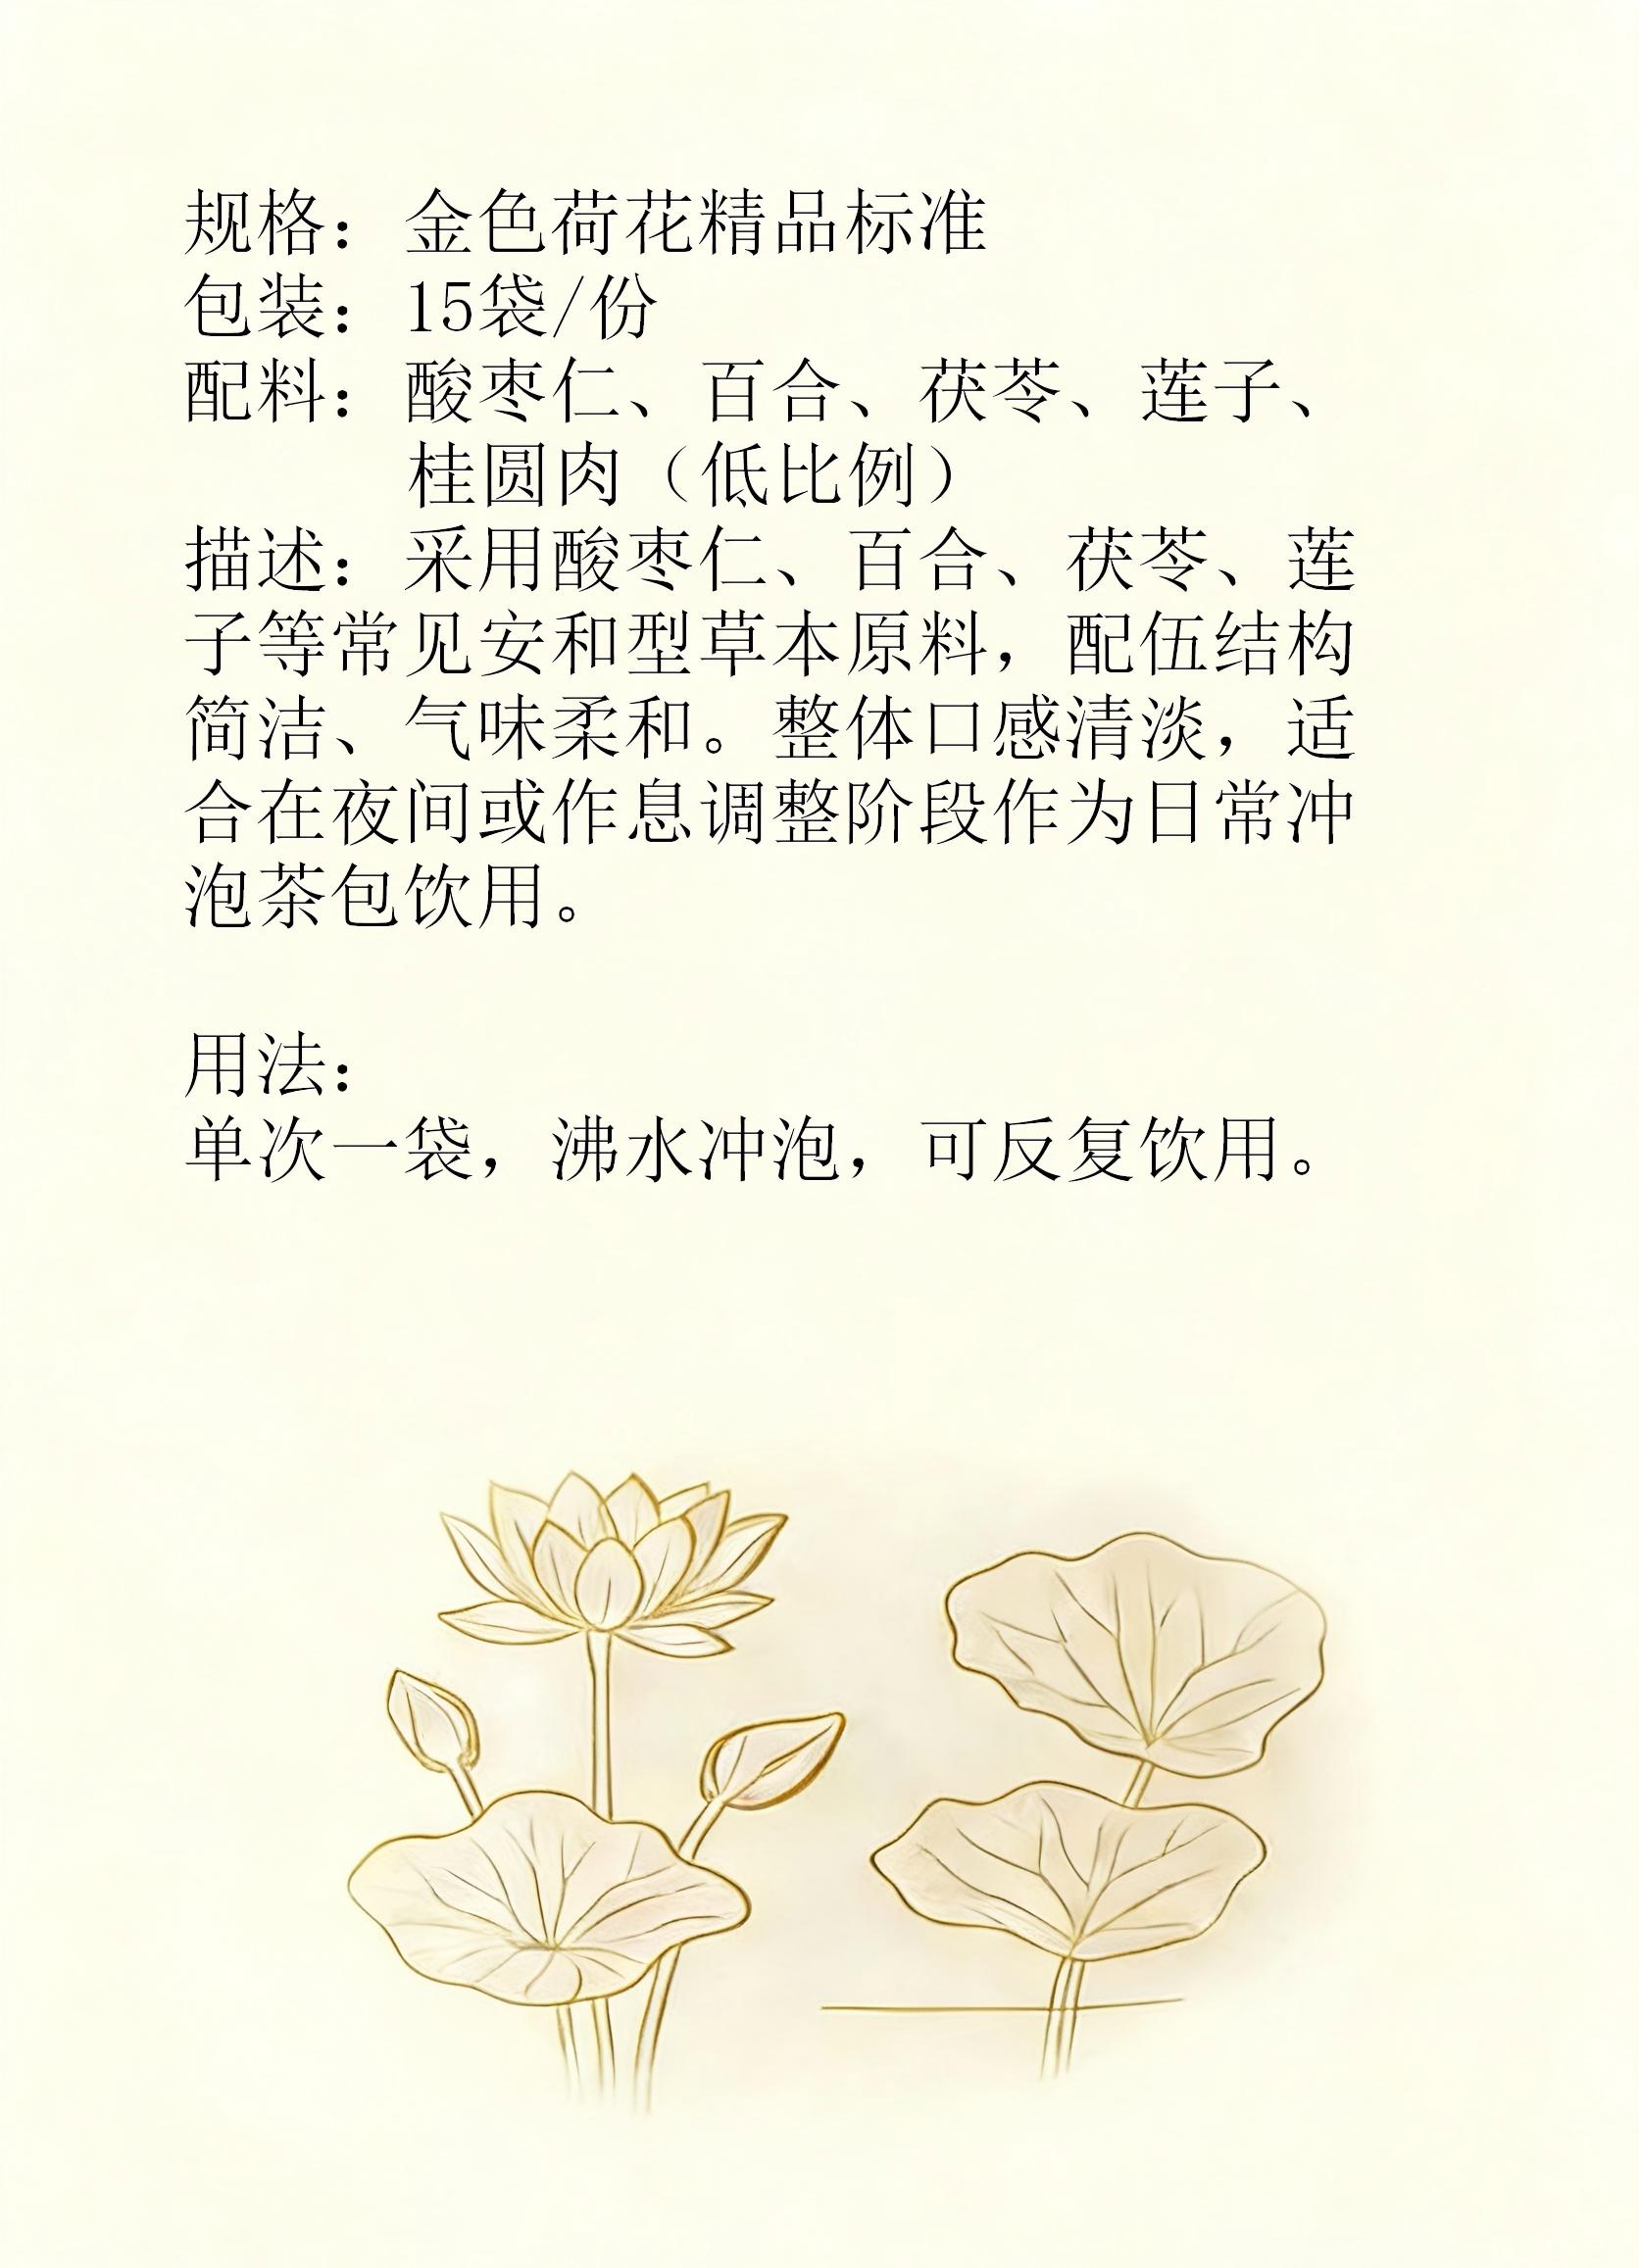 规格：金色荷花精品标准
包装：15袋/份
配料：酸枣仁、百合、茯苓、莲子、
桂圆肉（低比例）
描述：采用酸枣仁、百合、茯苓、莲
子等常见安和型草本原料，配伍结构
简洁、气味柔和。整体口感清淡，适
合在夜间或作息调整阶段作为日常冲
泡茶包饮用。
用法：
单次一袋，沸水冲泡，可反复饮用。